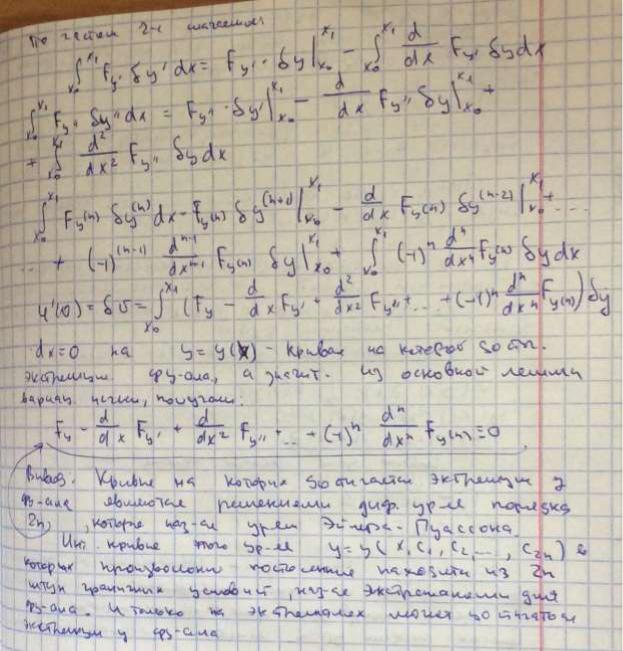 По частям 2н слагаемые:
∫_{x₀}^{x₁} F_{y'} δy' dx = F_{y'} · δy |_{x₀}^{x₁} − ∫_{x₀}^{x₁} d/dx F_{y'} δy dx
∫_{x₀}^{x₁} F_{y''} δy'' dx = F_{y''} · δy' |_{x₀}^{x₁} − d/dx F_{y''} δy |_{x₀}^{x₁} +
+ ∫_{x₀}^{x₁} d²/dx² F_{y''} δy dx
∫_{x₀}^{x₁} F_{y(n)} δy^{(n)} dx = F_{y(n)} δy^{(n+1)} |_{x₀}^{x₁} − d/dx F_{y(n)} δy^{(n-2)} |_{x₀}^{x₁} + ...
... + (-1)^{(n-1)} d^{n-1}/dx^{n-1} F_{y(n)} δy |_{x₀}^{x₁} + ∫_{x₀}^{x₁} (-1)^n d^n/dx^n F_{y(n)} δy dx
φ'(0) = δv = ∫_{x₀}^{x₁} (F_y − d/dx F_{y'} + d²/dx² F_{y''} + ... + (-1)^n d^n/dx^n F_{y(n)}) δy
dx = 0 на y = y(x) - кривая на которой дости.
экстремум. фу-ала, а значит. из основной леммы
вариац. исчис, получаем:
F_y − d/dx F_{y'} + d/dx² F_{y''} + ... + (-1)^n d^n/dx^n F_{y(n)} = 0
Вывод: Кривые на которых достигается экстремум у
фу-ала являются решениями диф. ур-я порядка
2n, которые наз-ся ур-ем Эйлера-Пуассона.
Инт. кривые этого ур-я y = y(x, c₁, c₂, ..., c_{2n}) в
которых произвольные постоянные находятся из 2n
штук граничных условий, наз-ся экстремалями для
фу-ала. И только на экстремалях может достигаться
экстремум у фу-ала